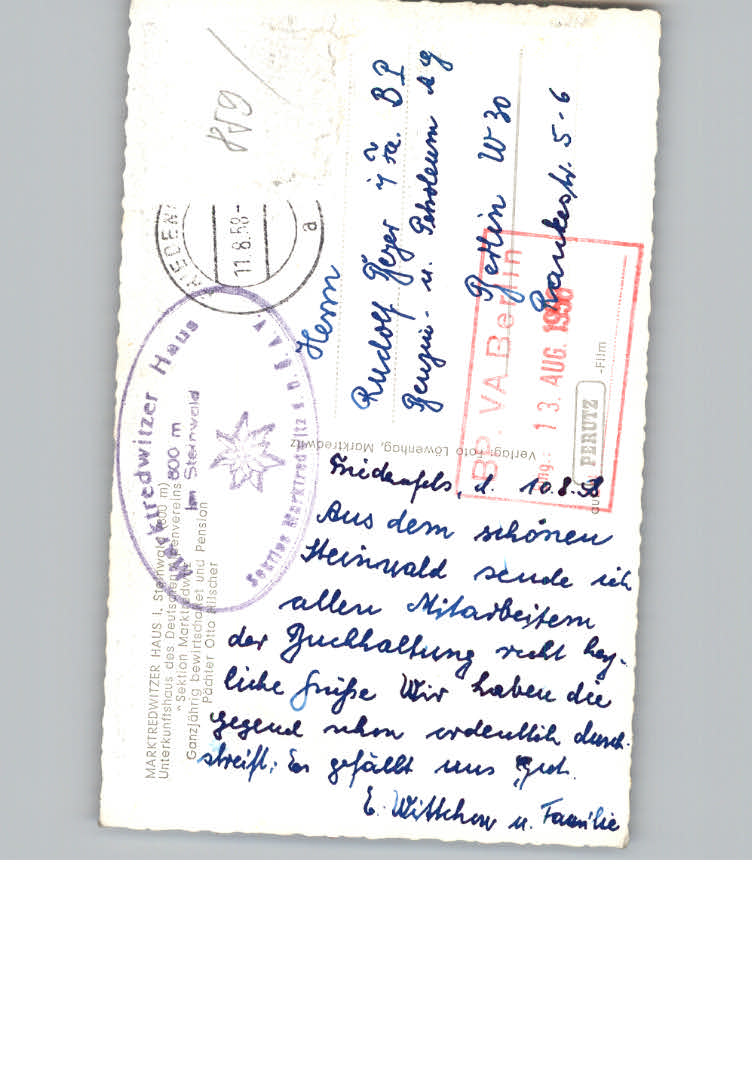 MARKTREDWITZER HAUS I. Steinwald (800 m)
Unterkunftshaus des Deutschen Alpenvereins
"Sektion Marktredwitz"
Ganzjährig bewirtschaftet und Pension
Pächter Otto
Marktredwitzer Haus
800 m
Im Steinwald
Sektion Marktredwitz
11.8.58-
a
Friedenfels, d. 10.8.58
Aus dem schönen
Steinwald sende ich
allen Mitarbeitern
der Buchhaltung recht herz-
liche Grüße Wir haben die
gegend schon ordentlich durch-
streift. Es gefällt uns gut.
E. Wittchow u. Familie
Verlag: Foto Löwenhag, Marktredwitz
Herrn
Rudolf i/Fa. BP
Benzin- u. Petroleum AG
Berlin W 30
Rankestr. 5-6
BP. VA Berlin
Eing.: 13. AUG. 1958
PERUTZ -Film